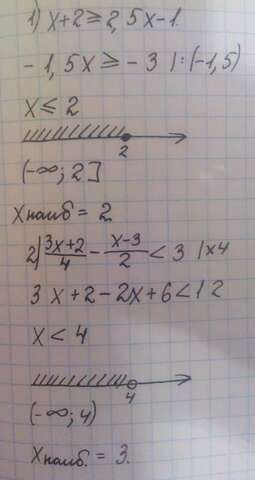 1) x+2≥2,5x-1.
-1,5x≥-3 |:(-1,5)
x≤2
2
(-∞;2]
Xнаиб=2.
2) (3x+2)/4 - (x-3)/2 < 3 |x4
3x+2-2x+6<12
x<4
4
(-∞;4)
Xнаиб.=3.